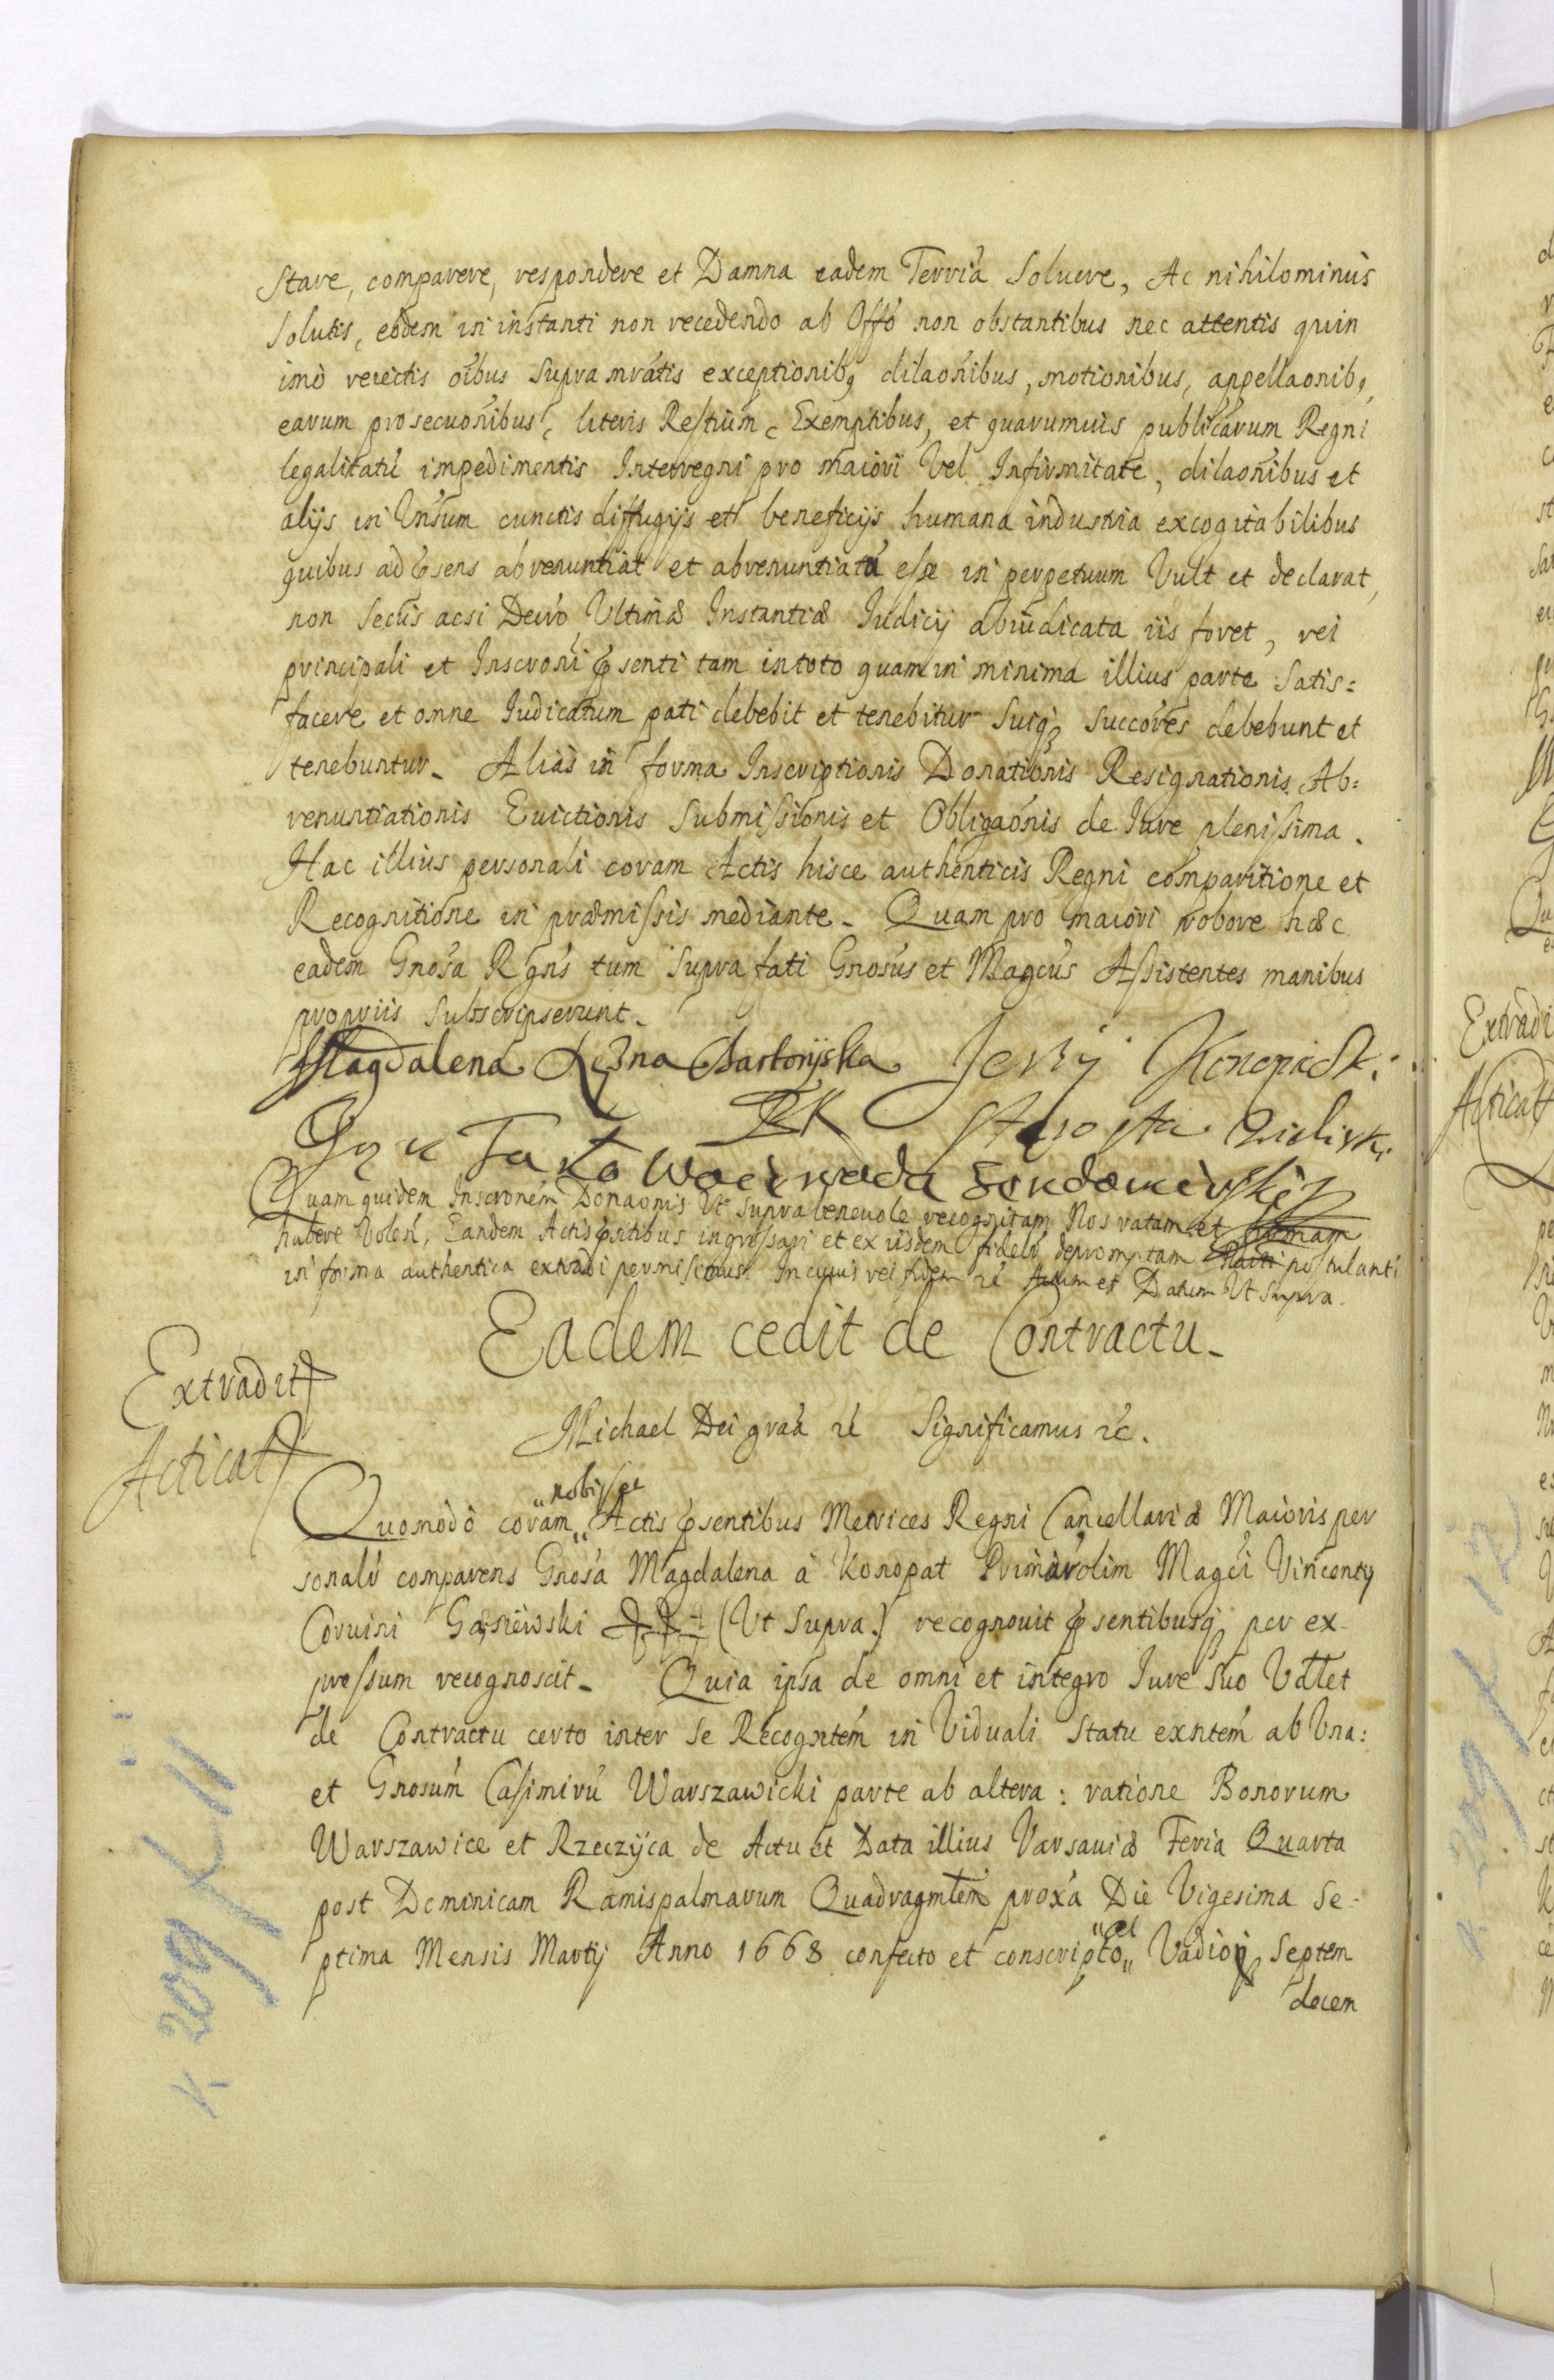 Stare, comparere, respondere et Damna eadem Terria Soluere, Ac nihilominus
Solutis, eodem in instanti non recedendo ab Offo non obstantibus nec attentis quin
imò reiectis oibus Supra nratis exceptionibq dilaonibus, motionibus, appellaonibq,
earum prosecuonibus, literis Restium, Exemptibus, et quarumuis publicarum Regni
legalitatu impedimentis Interregni pro maiori Vel Infirmitate, dilaonibus et
alijs in Vnsum cunctis diffugijs et beneficijs humana industria excogitabilibus
quibus ad psens abrenuntiat et abrenuntiatu esse in perpetuum Vult et declarat,
non Secus acsi Decro Ultimæ Instantiæ Iudicij abiudicata iis foret, rei
principali et Inscroni psenti tam intoto quam in minima illius parte Satis=
facere et onne Iudicatum pati debebit et tenebitur Suiq Succores debebunt et
tenebuntur. Aliàs in forma Inscriptionis Donationis Resignationis Ab=
renuntiationis Euictionis Submissionis et Obligaonis de Iure plenissima.
Hac illius personali coram Actis hisce authenticis Regni comparitione et
Recognitione in præmissis mediante. Quam pro maiori robore hæc
eadem Gnosa Rgns tum Supra fati Gnosus et Magcus Assistentes manibus
propriis Subscripserunt.
Magdalena Xzna Czartoryska Jerzy Konopack:
Starosta
Jako Woiewoda Sendomirskij
Quam quidem Inscronem Donaonis Ut supra beneuole recognitam Nos ratam et firmam
habere Volen, Eandem Actis pntibus ingrossari et ex iisdem fidelr depromptam Parti postulanti
in forma authentica extradi permisimus. In cuius rei fidem rc Actum et Datum Ut Supra.
Eadem cedit de Contractu.
Extradit
Michael Dei graa rc Significamus rc.
Acticat
nobis et
Quomodò coram Actis psentibus Metrices Regni Cancellariæ Maioris per
sonalr comparens Gnosa Magdalena à Konopat Primar olim Magci Vincenty
Coruini Gąsiewski (Ut Supra.) recognouit psentibusq per ex-
pressum recognoscit. Quia ipsa de omni et integro Iure Suo
de Contractu certo inter Se Recogntem in Viduali Statu exntem ab Vna:
et Gnosum Casimiru Warszawicki parte ab altera: ratione Bonorum
Warszawice et Rzeczyca de Actu et Data illius Varsauiæ Feria Quarta
post Dominicam Ramispalmarum Quadragmlem proxa Die Vigesima Se-
ptima Mensis Martij Anno 1668 confecto et conscripto Vadior Septem
decem
k 209 t II